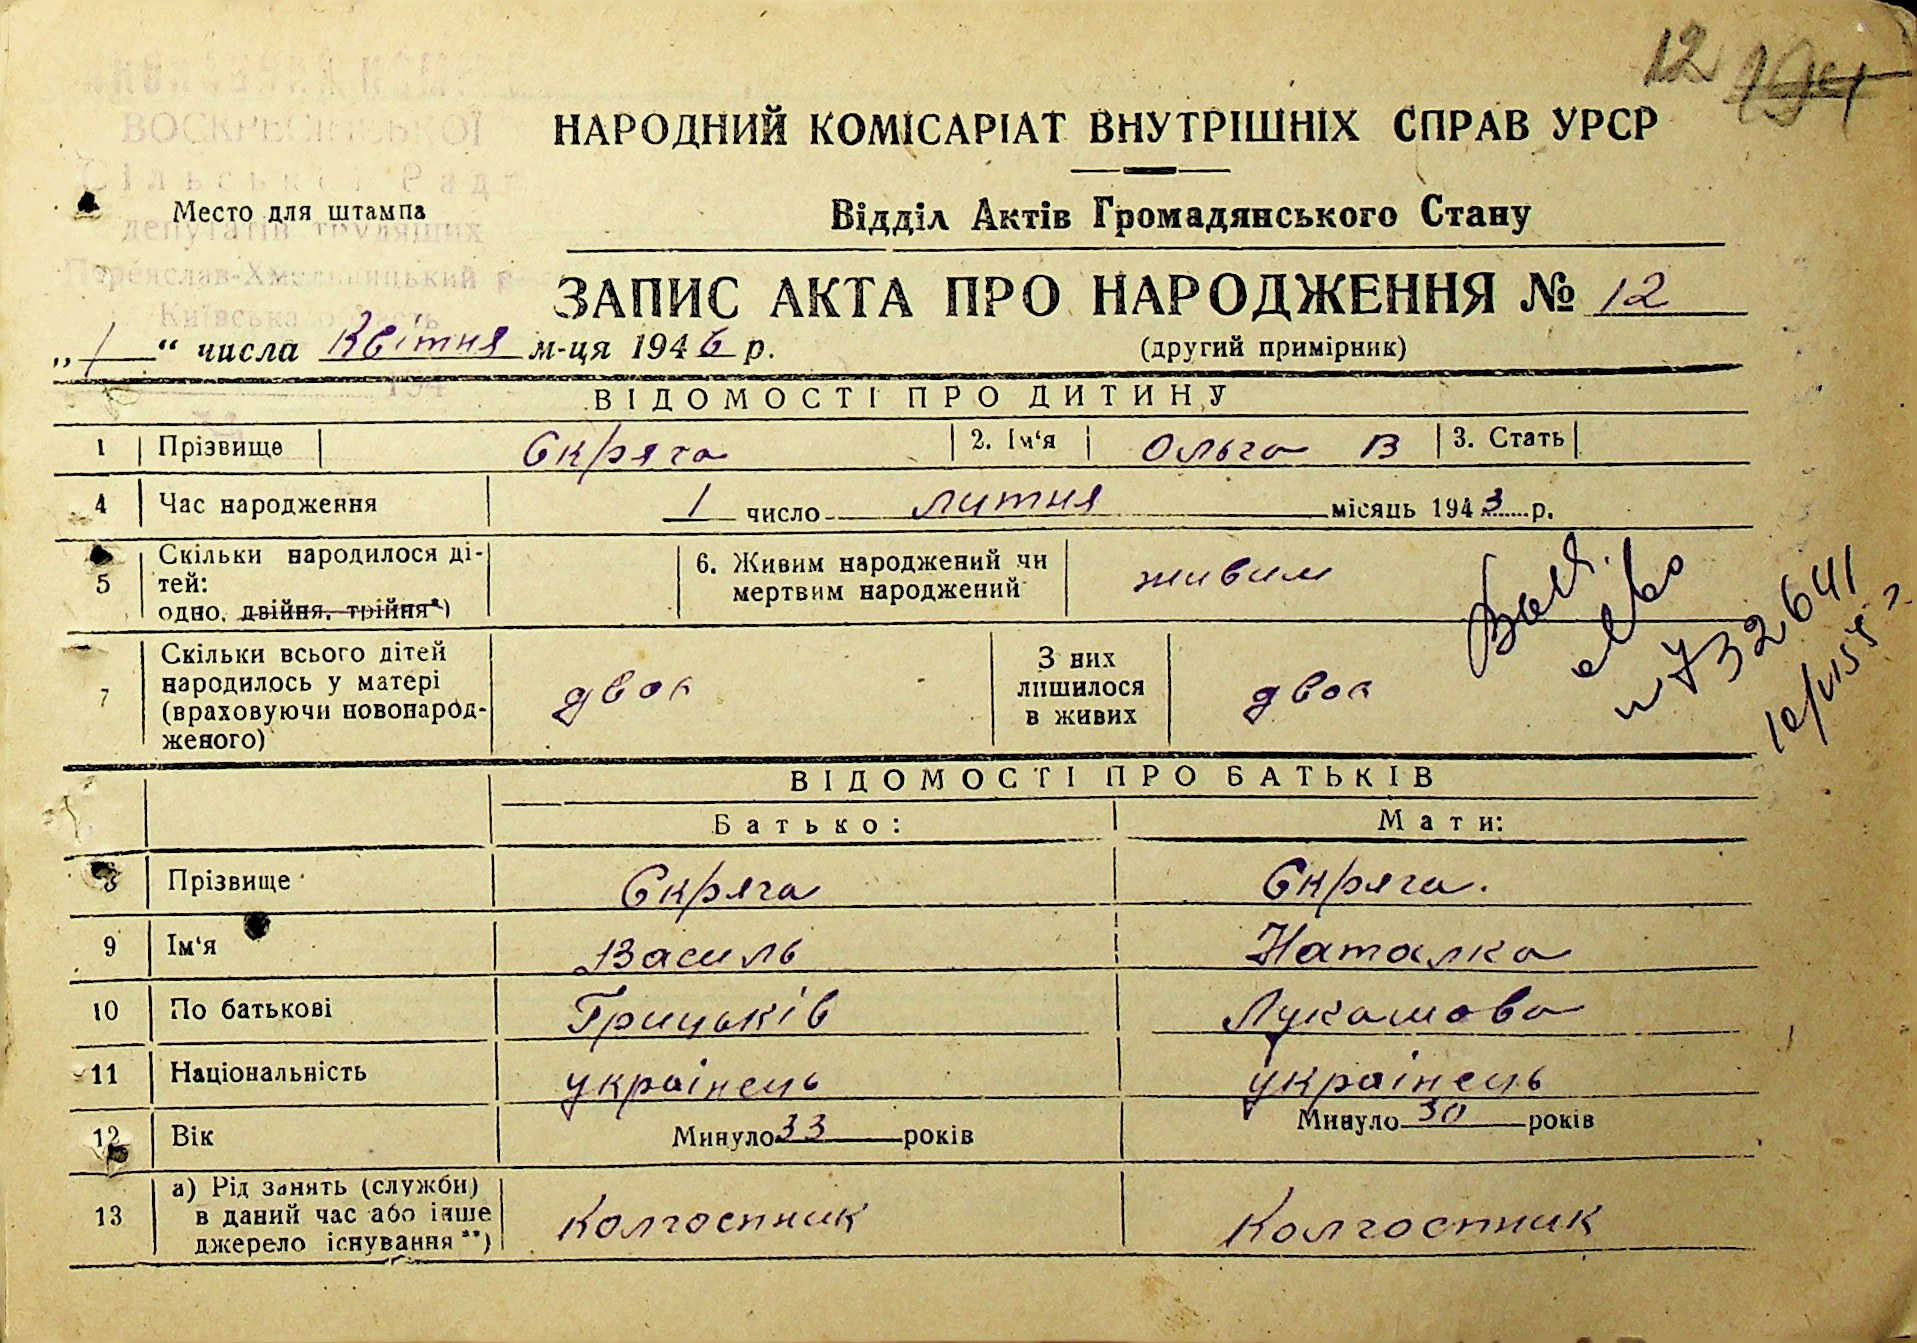 12 194
НАРОДНИЙ КОМІСАРІАТ ВНУТРІШНІХ СПРАВ УРСР
ВОСКРЕСИНСЬКОЇ
Сільської Ради
Место для штампа
депутатів трудящих
Відділ Актів Громадянського Стану
Переяслав-Хмельницький р
Київська область
ЗАПИС АКТА ПРО НАРОДЖЕННЯ № 12
„1“ числа Квітня м-ця 1946 р.
(другий примірник)
194
ВІДОМОСТІ ПРО ДИТИНУ
1 Прізвище Скряга 2. Ім‘я Ольга В 3. Стать
4 Час народження 1 число лютня місяць 1943 р.
5 Скільки народилося ді-
тей:
одно, двійня, трійня*)
6. Живим народжений чи
мертвим народжений
живим
7 Скільки всього дітей
народилось у матері
(враховуючи новонарод-
женого)
двоє
З них
лишилося
в живих
двоє
№ 732641
ВІДОМОСТІ ПРО БАТЬКІВ
Батько: Мати:
8 Прізвище Скряга Скряга.
9 Ім‘я Василь Наталка
10 По батькові Грицьків Лукашова
11 Національність українець українець
12 Вік Минуло 33 років Минуло 30 років
13 а) Рід занять (служби)
в даний час або інше
джерело існування **)
Колгоспник Колгоспник